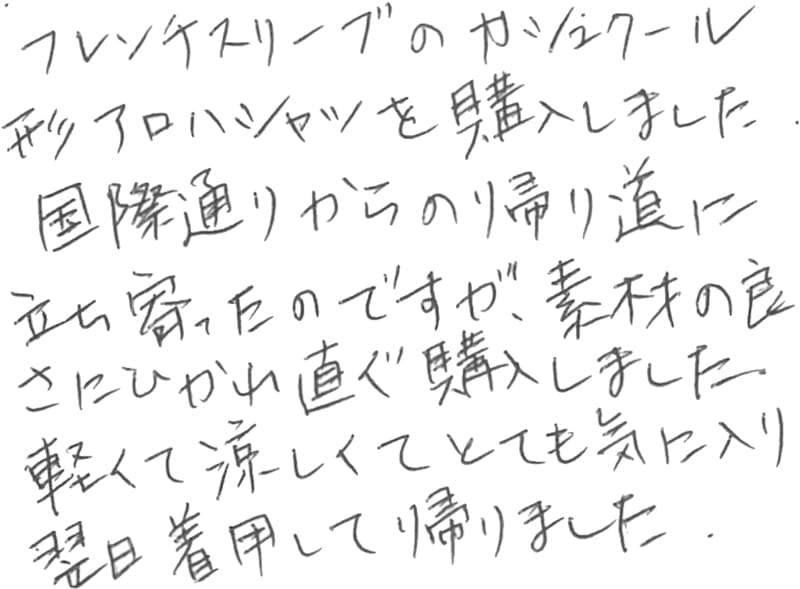 フレンチスリーブのカシュクール
形アロハシャツを購入しました.
国際通りからの帰り道に
立ち寄ったのですが、素材の良
さにひかれ直ぐ購入しました.
軽くて涼しくてとても気に入り
翌日着用して帰りました.